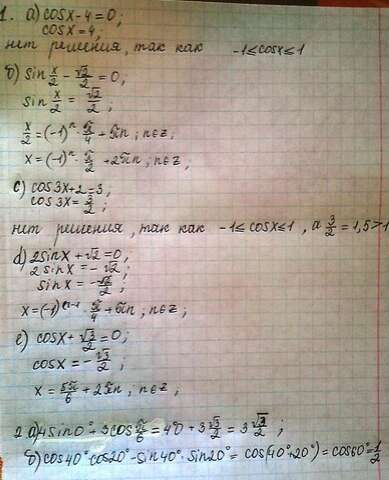 1. а) cosx-4=0;
cosx=4;
нет решения, так как -1≤cosx≤1
б) sin x/2 - √2/2 = 0;
sin x/2 = √2/2;
x/2 = (-1)ⁿ · π/4 + πn; n∈z;
x = (-1)ⁿ · π/2 + 2πn; n∈z;
c) cos3x+2=3;
cos3x = 3/2;
нет решения, так как -1≤cosx≤1, а 3/2 = 1,5>1
d) 2sinx + √2 = 0;
2sinx = -√2;
sinx = -√2/2;
x = (-1)ⁿ⁻¹ π/4 + πn; n∈z;
e) cosx + √3/2 = 0;
cosx = -√3/2;
x = 5π/6 + 2πn; n∈z;
2 а) 4sin0° + 3cos π/6 = 4·0 + 3 √3/2 = 3 √3/2;
б) cos40° cos20° - sin40° · sin20° = cos(40°+20°) = cos60° = 1/2